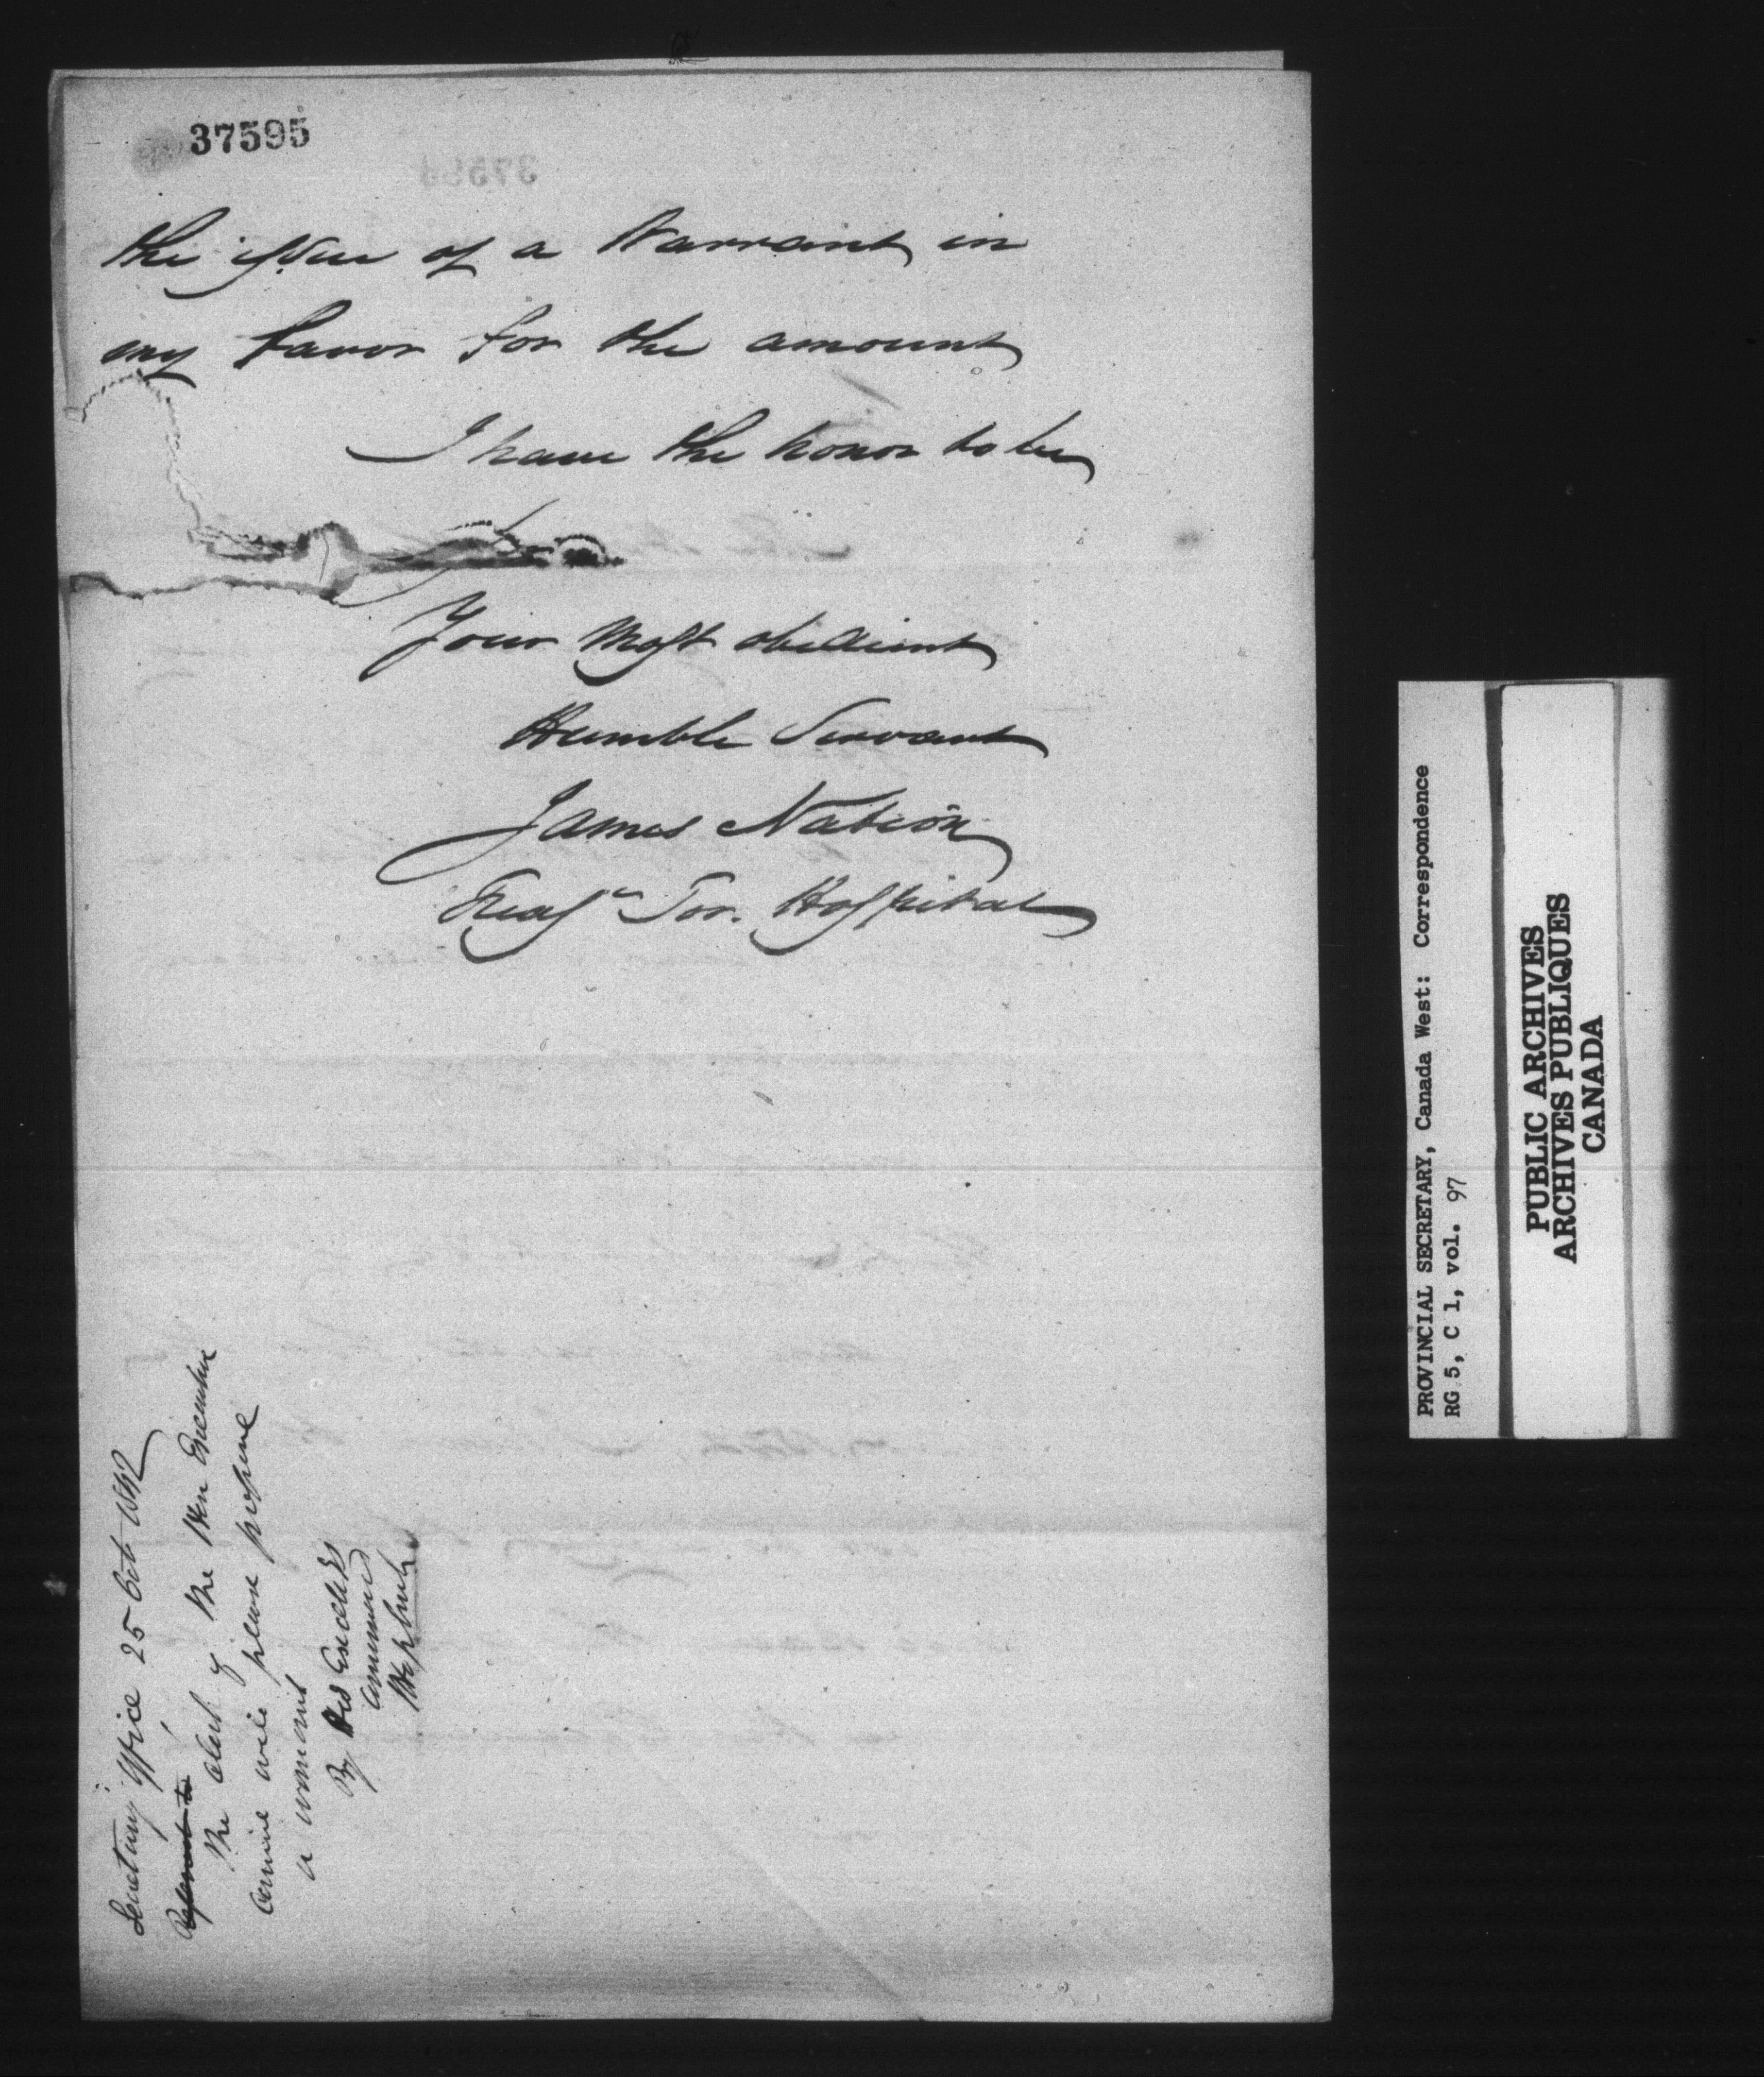 37595
the issue of a Warrant in
my favor for the amount
I have the honor to be
Your most obedient
Humble Servant
James Nation
Treasr Tor. Hospital
Secretary's Office 25 Oct 1842
Referred to
the Clerk of the Hon Executive
Council will please prepare
a warrant
By His Excellys
Command
PROVINCIAL SECRETARY, Canada West: Correspondence
RG 5, C 1, vol. 97
PUBLIC ARCHIVES
ARCHIVES PUBLIQUES
CANADA